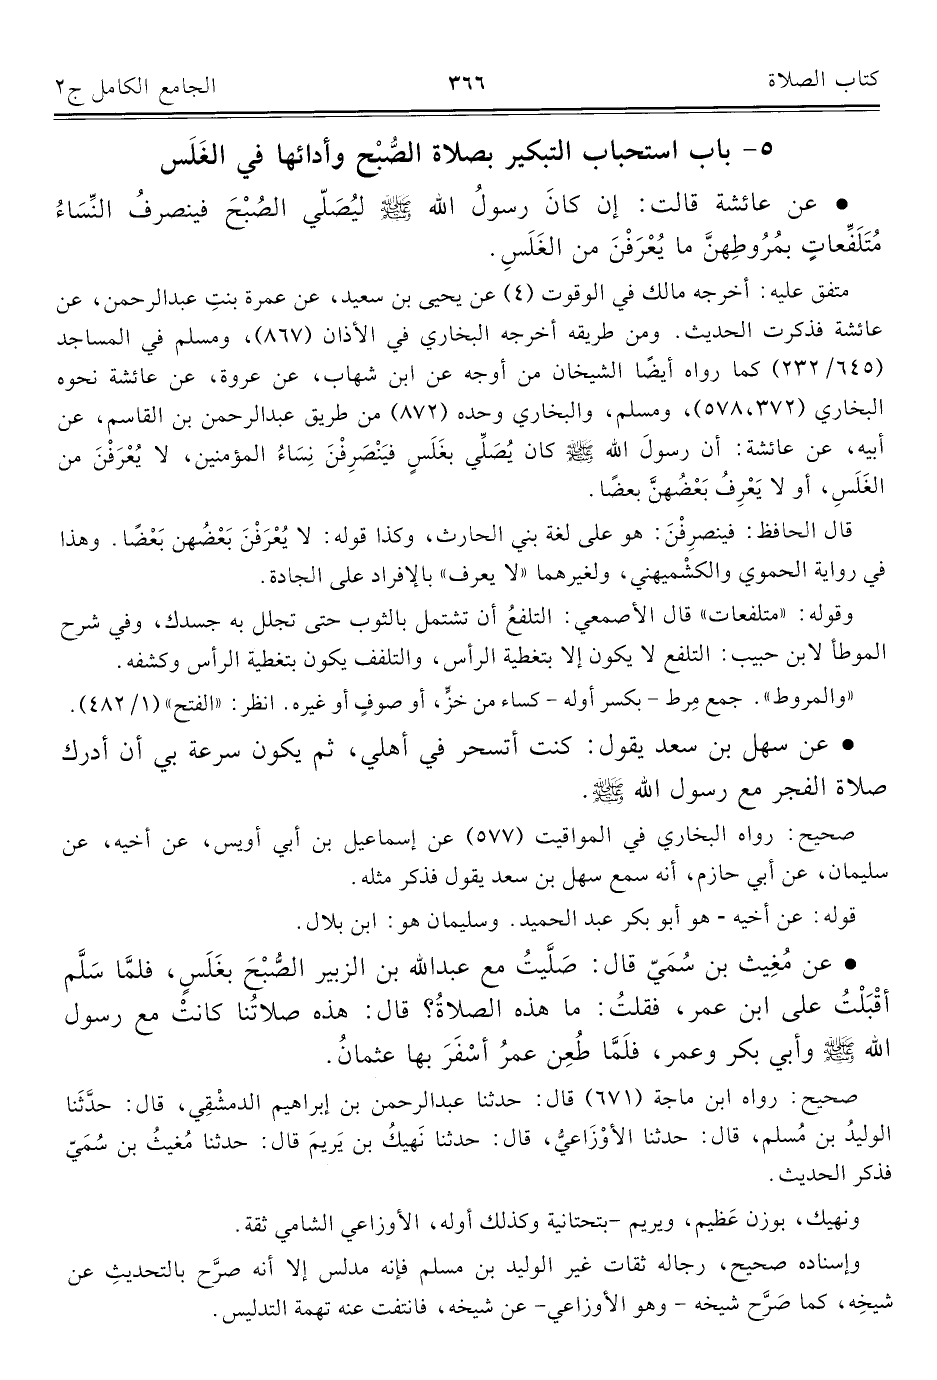 كتاب الصلاة ٣٦٦ الجامع الكامل ج٢
٥- باب استحباب التبكير بصلاة الصُّبْح وأدائها في الغَلَس
• عن عائشة قالت: إن كانَ رسولُ الله ﷺ ليُصَلّي الصُبْحَ فينصرفُ النِّسَاءُ
مُتَلَفِّعاتٍ بمُرُوطِهنَّ ما يُعْرَفْنَ من الغَلَسِ.
متفق عليه: أخرجه مالك في الوقوت (٤) عن يحيى بن سعيد، عن عمرة بنتِ عبدالرحمن، عن
عائشة فذكرت الحديث. ومن طريقه أخرجه البخاري في الأذان (٨٦٧)، ومسلم في المساجد
(٦٤٥/ ٢٣٢) كما رواه أيضًا الشيخان من أوجه عن ابن شهاب، عن عروة، عن عائشة نحوه
البخاري (٥٧٨،٣٧٢)، ومسلم، والبخاري وحده (٨٧٢) من طريق عبدالرحمن بن القاسم، عن
أبيه، عن عائشة: أن رسولَ الله ﷺ كان يُصَلِّي بغَلَسٍ فيَنْصَرِفْنَ نِسَاءُ المؤمنين، لا يُعْرَفْنَ من
الغَلَسِ، أو لا يَعْرِفُ بَعْضُهنَّ بعضًا.
قال الحافظ: فينصرِفْنَ: هو على لغة بني الحارث، وكذا قوله: لا يُعْرَفْنَ بَعْضُهن بَعْضًا. وهذا
في رواية الحموي والكشْميهني، ولغيرهما «لا يعرف» بالإفراد على الجادة.
وقوله: «متلفعات» قال الأصمعي: التلفعُ أن تشتمل بالثوب حتى تجلل به جسدك، وفي شرح
الموطأ لابن حبيب: التلفع لا يكون إلا بتغطية الرأس، والتلفف يكون بتغطية الرأس وكشفه.
«والمروط». جمع مِرط - بكسر أوله - كساء من خزٍّ، أو صوفٍ أو غيره. انظر: «الفتح» (١/ ٤٨٢).
• عن سهل بن سعد يقول: كنت أتسحر في أهلي، ثم يكون سرعة بي أن أدرك
صلاة الفجر مع رسول الله ﷺ.
صحيح: رواه البخاري في المواقيت (٥٧٧) عن إسماعيل بن أبي أويس، عن أخيه، عن
سليمان، عن أبي حازم، أنه سمع سهل بن سعد يقول فذكر مثله.
قوله: عن أخيه - هو أبو بكر عبد الحميد. وسليمان هو: ابن بلال.
• عن مُغِيث بن سُمَيّ قال: صَلَّيتُ مع عبدالله بن الزبير الصُّبْحَ بغَلَسٍ، فلمَّا سَلَّم
أقْبَلْتُ على ابن عمر، فقلتُ: ما هذه الصلاةُ؟ قال: هذه صلاتُنا كانتْ مع رسول
الله ﷺ وأبي بكر وعمر، فلَمَّا طُعِن عمرُ أسْفَرَ بها عثمانُ.
صحيح: رواه ابن ماجة (٦٧١) قال: حدثنا عبدالرحمن بن إبراهيم الدمشْقِي، قال: حدَّثَنا
الوليدُ بن مُسلم، قال: حدثنا الأوْزَاعيُّ، قال: حدثنا نَهيكُ بن يَريمَ قال: حدثنا مُغيثُ بن سُمَيّ
فذكر الحديث.
ونهيك، بوزن عَظيم، ويريم -بتحتانية وكذلك أوله، الأوزاعي الشامي ثقة.
وإسناده صحيح، رجاله ثقات غير الوليد بن مسلم فإنه مدلس إلا أنه صرَّح بالتحديثِ عن
شيخِه، كما صَرَّح شيخه - وهو الأوزاعي- عن شيخه، فانتفت عنه تهمة التدليس.